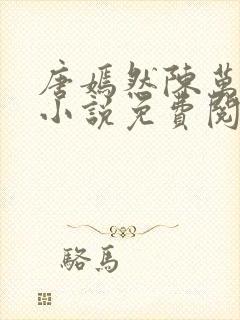 唐嫣然陳萬
小說免費閱
駱馬